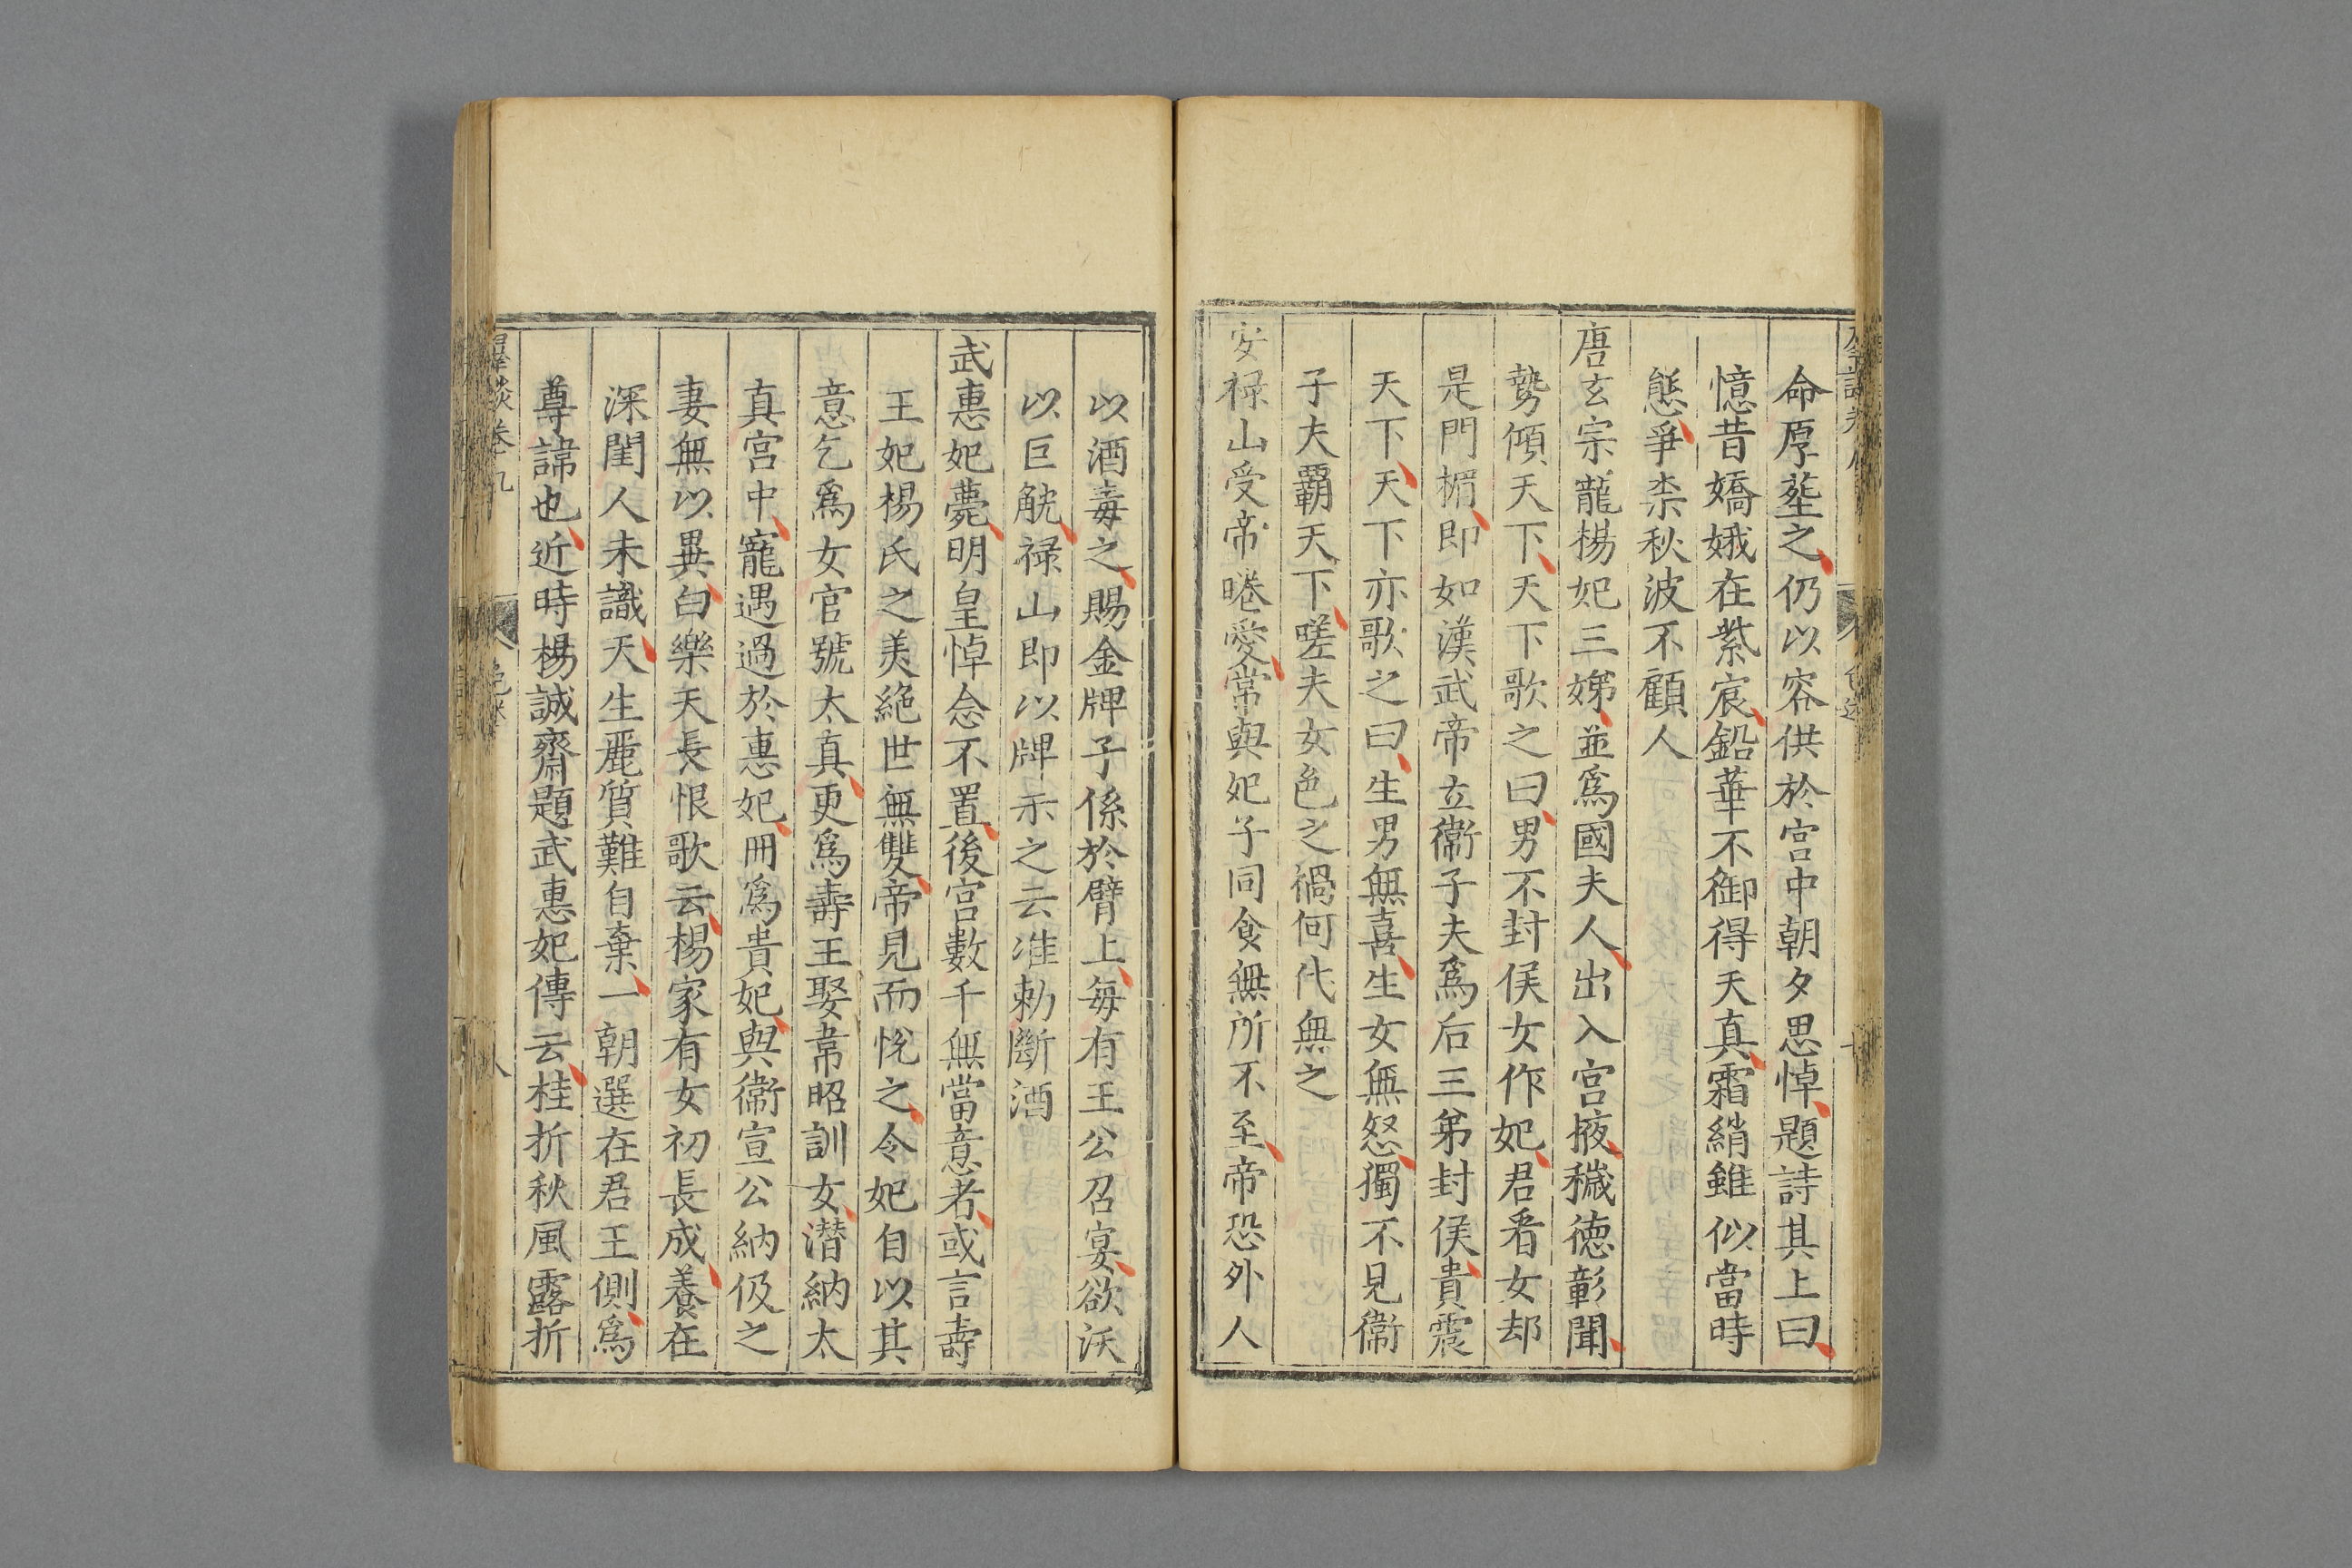 命厚塟之仍以容供於宮中朝夕思悼題詩其上曰
憶昔嬌娥在紫宸鉛華不御得天真霜綃雖似當時
態爭柰秋波不顧人
唐玄宗寵楊妃三娣並爲國夫人出入宮掖穢德彰聞
勢傾天下天下歌之曰男不封侯女作妃君看女却
是門楣即如漢武帝立衞子夫爲后三弟封侯貴震
天下天下亦歌之曰生男無喜生女無怒獨不見衞
子夫覇天下嗟夫女色之禍何代無之
安禄山受帝睠愛常與妃子同食無所不至帝恐外人
以酒毒之賜金牌子係於臂上每有王公召宴欲沃
以巨觥禄山即以牌示之云准勑斷酒
武惠妃薨明皇悼念不置後宮數千無當意者或言壽
王妃楊氏之美絶世無雙帝見而悅之令妃自以其
意乞爲女官號太真更爲壽王娶韋昭訓女潜納太
真宮中寵遇過於惠妃冊爲貴妃與衞宣公納伋之
妻無以異白樂天長恨歌云楊家有女初長成養在
深閨人未識天生麗質難自棄一朝選在君王側爲
尊諱也近時楊誠齋題武惠妃傳云桂折秋風露折
卷九
八